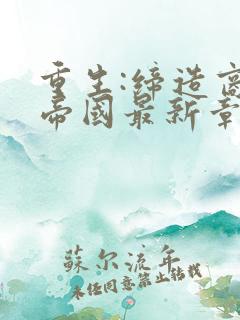 重生:締造商
帝國最新章
蘇尔流年
未经同意禁止转载